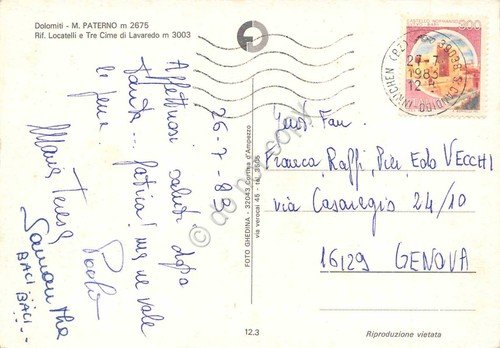 Dolomiti - M. PATERNO m 2675
Rif. Locatelli e Tre Cime di Lavaredo m 3003
26-7-83
Affettuosi saluti dopo
tanta... fatica! ma ne vale
la pena.
Paolo
Maria Teresa
Samantha
BACI... BACI...
FOTO GHEDINA - 32043 Cortina d'Ampezzo
via verocai 45 - tel.
12.3
CASTELLO NORMANNO
SVEVO BARI
39038 S. CANDIDO-INNICHEN (BZ)
27-7
1983
12
Fam.
Franca Raffi, Pier Edo VECCHI
via Casaregis 24/10
16129 GENOVA
Riproduzione vietata